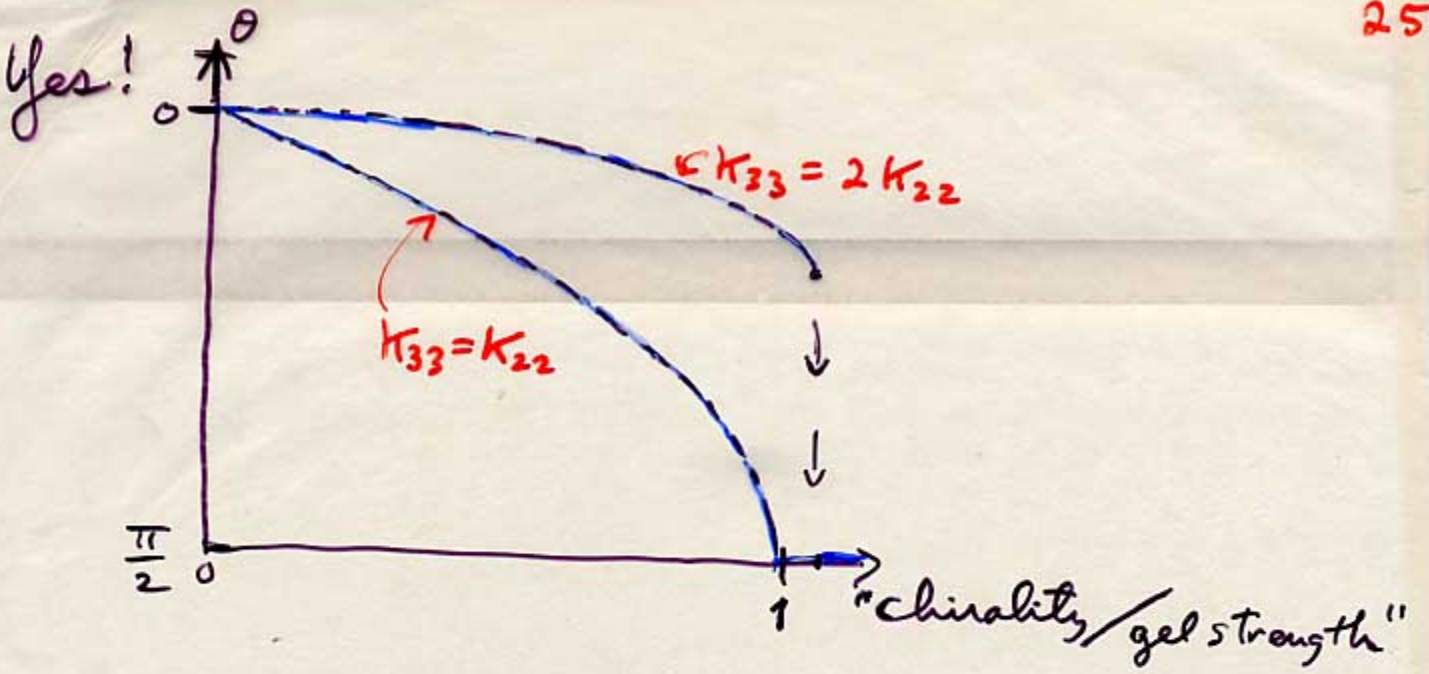 25
Yes!
θ
0
K₃₃ = 2 K₂₂
K₃₃ = K₂₂
π/2
0
1
"chirality/gel strength"